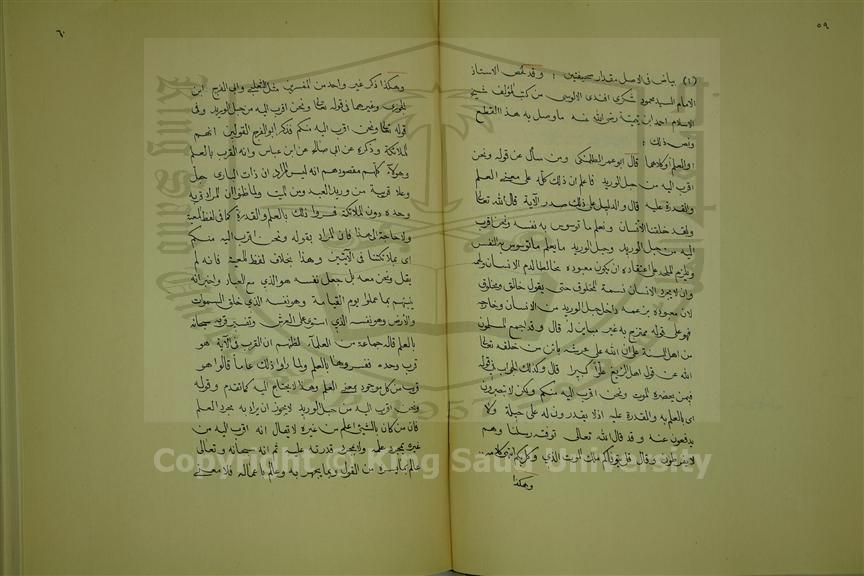 ٥٩
(١) بياض في الاصل مقدار صحيفتين : وقد لخص الاستاذ
الامام السيد محمود شكري افندي الالوسي من كتب المؤلف شيخ
الاسلام احمد ابن تيمية رضي الله عنه ما وصل به هذا القطع
ونص ذلك :
قال ابو عمر الطلمنكي ومن سأل عن قوله ونحن
اقرب اليه من حبل الوريد فاعلم ان ذلك كله على معنى العلم
والقدرة عليه قال والدليل على ذلك صدر الآية قال الله تعالى
ولقد خلقنا الانسان ونعلم ما توسوس به نفسه ونحن اقرب
اليه من حبل الوريد وحبل الوريد ما يعلم ما توسوس به النفس
ويلزم الملحد على اعتقاده ان يكون معبوده مخالطا لدم الانسان ولحمه
وان لا يجرد الانسان تسمية المخلوق حتى يقول خالق ومخلوق
لان معبوده بزعمه داخل حبل الوريد من الانسان وخارجه
فهو على قوله ممتزج به غير مباين له قال وقد اجمع المسلمون
من اهل السنة على ان الله على عرشه بائن من خلقه تعالى
الله عن قول اهل الزيغ علوا كبيرا قال وكذلك الجواب في قوله
فيمن يحضره الموت ونحن اقرب اليه منكم ولكن لا تبصرون
اى بالعلم به والقدرة عليه اذ لا يقدرون له على حيلة ولا
يدفعون عنه وقد قال الله تعالى توفته رسلنا وهم
لا يفرطون وقال قل يتوفاكم ملك الموت الذي وكل بكم انتهى كلامه
وهكذا
٦٠
وهكذا ذكر غير واحد من المفسرين مثل الثعلبي وابي الفرج ابن
الجوزى وغيرهما في قوله تعالى ونحن اقرب اليه من حبل الوريد وفى
قوله تعالى ونحن اقرب اليه منكم فذكر ابو الفرج القولين انهم
الملائكة وذكره عن ابي صالح عن ابن عباس وانه القرب بالعلم
وهؤلاء كلهم مقصودهم انه ليس المراد ان ذات البارى جل
وعلا قريبة من وريد العبد ومن الميت ولما ظنوا ان المراد قربه
وحده دون الملائكة فسروا ذلك بالعلم والقدرة كما في لفظ المعية
ولا حاجة الى هذا فان المراد بقوله ونحن اقرب اليه منكم
اى بملائكتنا في الآيتين وهذا بخلاف لفظ المعية فانه لم
يقل ونحن معه بل جعل نفسه هو الذي مع العباد واخبر انه
ينبئهم بما عملوا يوم القيامة وهو نفسه الذي خلق السموات
والارض وهو نفسه الذي استوى على العرش وتفسير قربه سبحانه
بالعلم قاله جماعة من العلماء لظنهم ان القرب في الآية هو
قرب وحده ففسروها بالعلم ولما راوا ذلك عاما قالوا هو
قريب من كل موجود بمعنى العلم وهذا لا يحتاج اليه كما تقدم وقوله
ونحن اقرب اليه من حبل الوريد لا يجوز ان يراد به مجرد العلم
فان من كان بالشيئ اعلم من غيره لا يقال انه اقرب اليه من
غيره بمجرد علمه ولا بمجرد قدرته عليه ثم انه سبحانه وتعالى
عالم بما يسره من القول وبما يجهر به وعالم باعماله فلا معنى
Copyright © King Saud University
1957